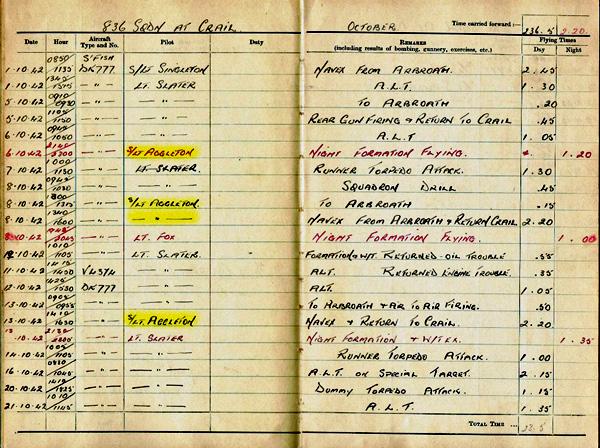 836 SQDN AT CRAIL. OCTOBER Time carried forward:— 236.5 2.20
Date Hour Aircraft Type and No. Pilot Duty REMARKS (including results of bombing, gunnery, exercises, etc.) Flying Times Day Night
1·10·42 0850 1135 S'FISH DK777 S/LT SINGLETON NAVEX FROM ARBROATH. 2.45
1·10·42 1345 1515 —"— LT. SLATER A.L.T. 1.30
5·10·42 0910 0930 —"— —"— TO ARBROATH .20
5·10·42 1105 1150 —"— —"— REAR GUN FIRING & RETURN TO CRAIL .45
6·10·42 0945 1050 —"— —"— A.L.T 1.05
6·10·42 2140 2300 —"— S/LT APPLETON NIGHT FORMATION FLYING. 1.20
7·10·42 1000 1130 —"— LT. SLATER. RUNNER TORPEDO ATTACK. 1.30
8·10·42 0945 1030 —"— —"— SQUADRON DRILL .45
8·10·42 1300 1315 —"— S/LT APPLETON. TO ARBROATH .15
8·10·42 1340 1600 —"— —"— NAVEX FROM ARBROATH & RETURN CRAIL 2.20
8·10·42 —"— LT. FOX NIGHT FORMATION FLYING. 1.00
10·42 1010 1105 —"— LT. SLATER. FORMATION & W/T RETURNED - OIL TROUBLE .55
11·10·42 1415 1450 V4374 —"— ALT. RETURNED ENGINE TROUBLE. .35
12·10·42 1425 1530 DK777 —"— ALT. 1.05
13·10·42 0905 0955 —"— —"— TO ARBROATH & AIR TO AIR FIRING. .50
13·10·42 1410 1630 —"— S/LT. APPLETON NAVEX & RETURN TO CRAIL. 2.20
13·10·42 2130 2305 —"— LT. SLATER NIGHT FORMATION & W/T EX. 1.35
14·10·42 1005 1105 —"— —"— RUNNER TORPEDO ATTACK. 1.00
16·10·42 0830 1045 —"— —"— A.L.T. ON SPECIAL TARGET. 2.15
20·10·42 1410 1525 —"— —"— DUMMY TORPEDO ATTACK. 1.15
21·10·42 1010 1145 —"— —"— A.L.T. 1.35
TOTAL TIME ...